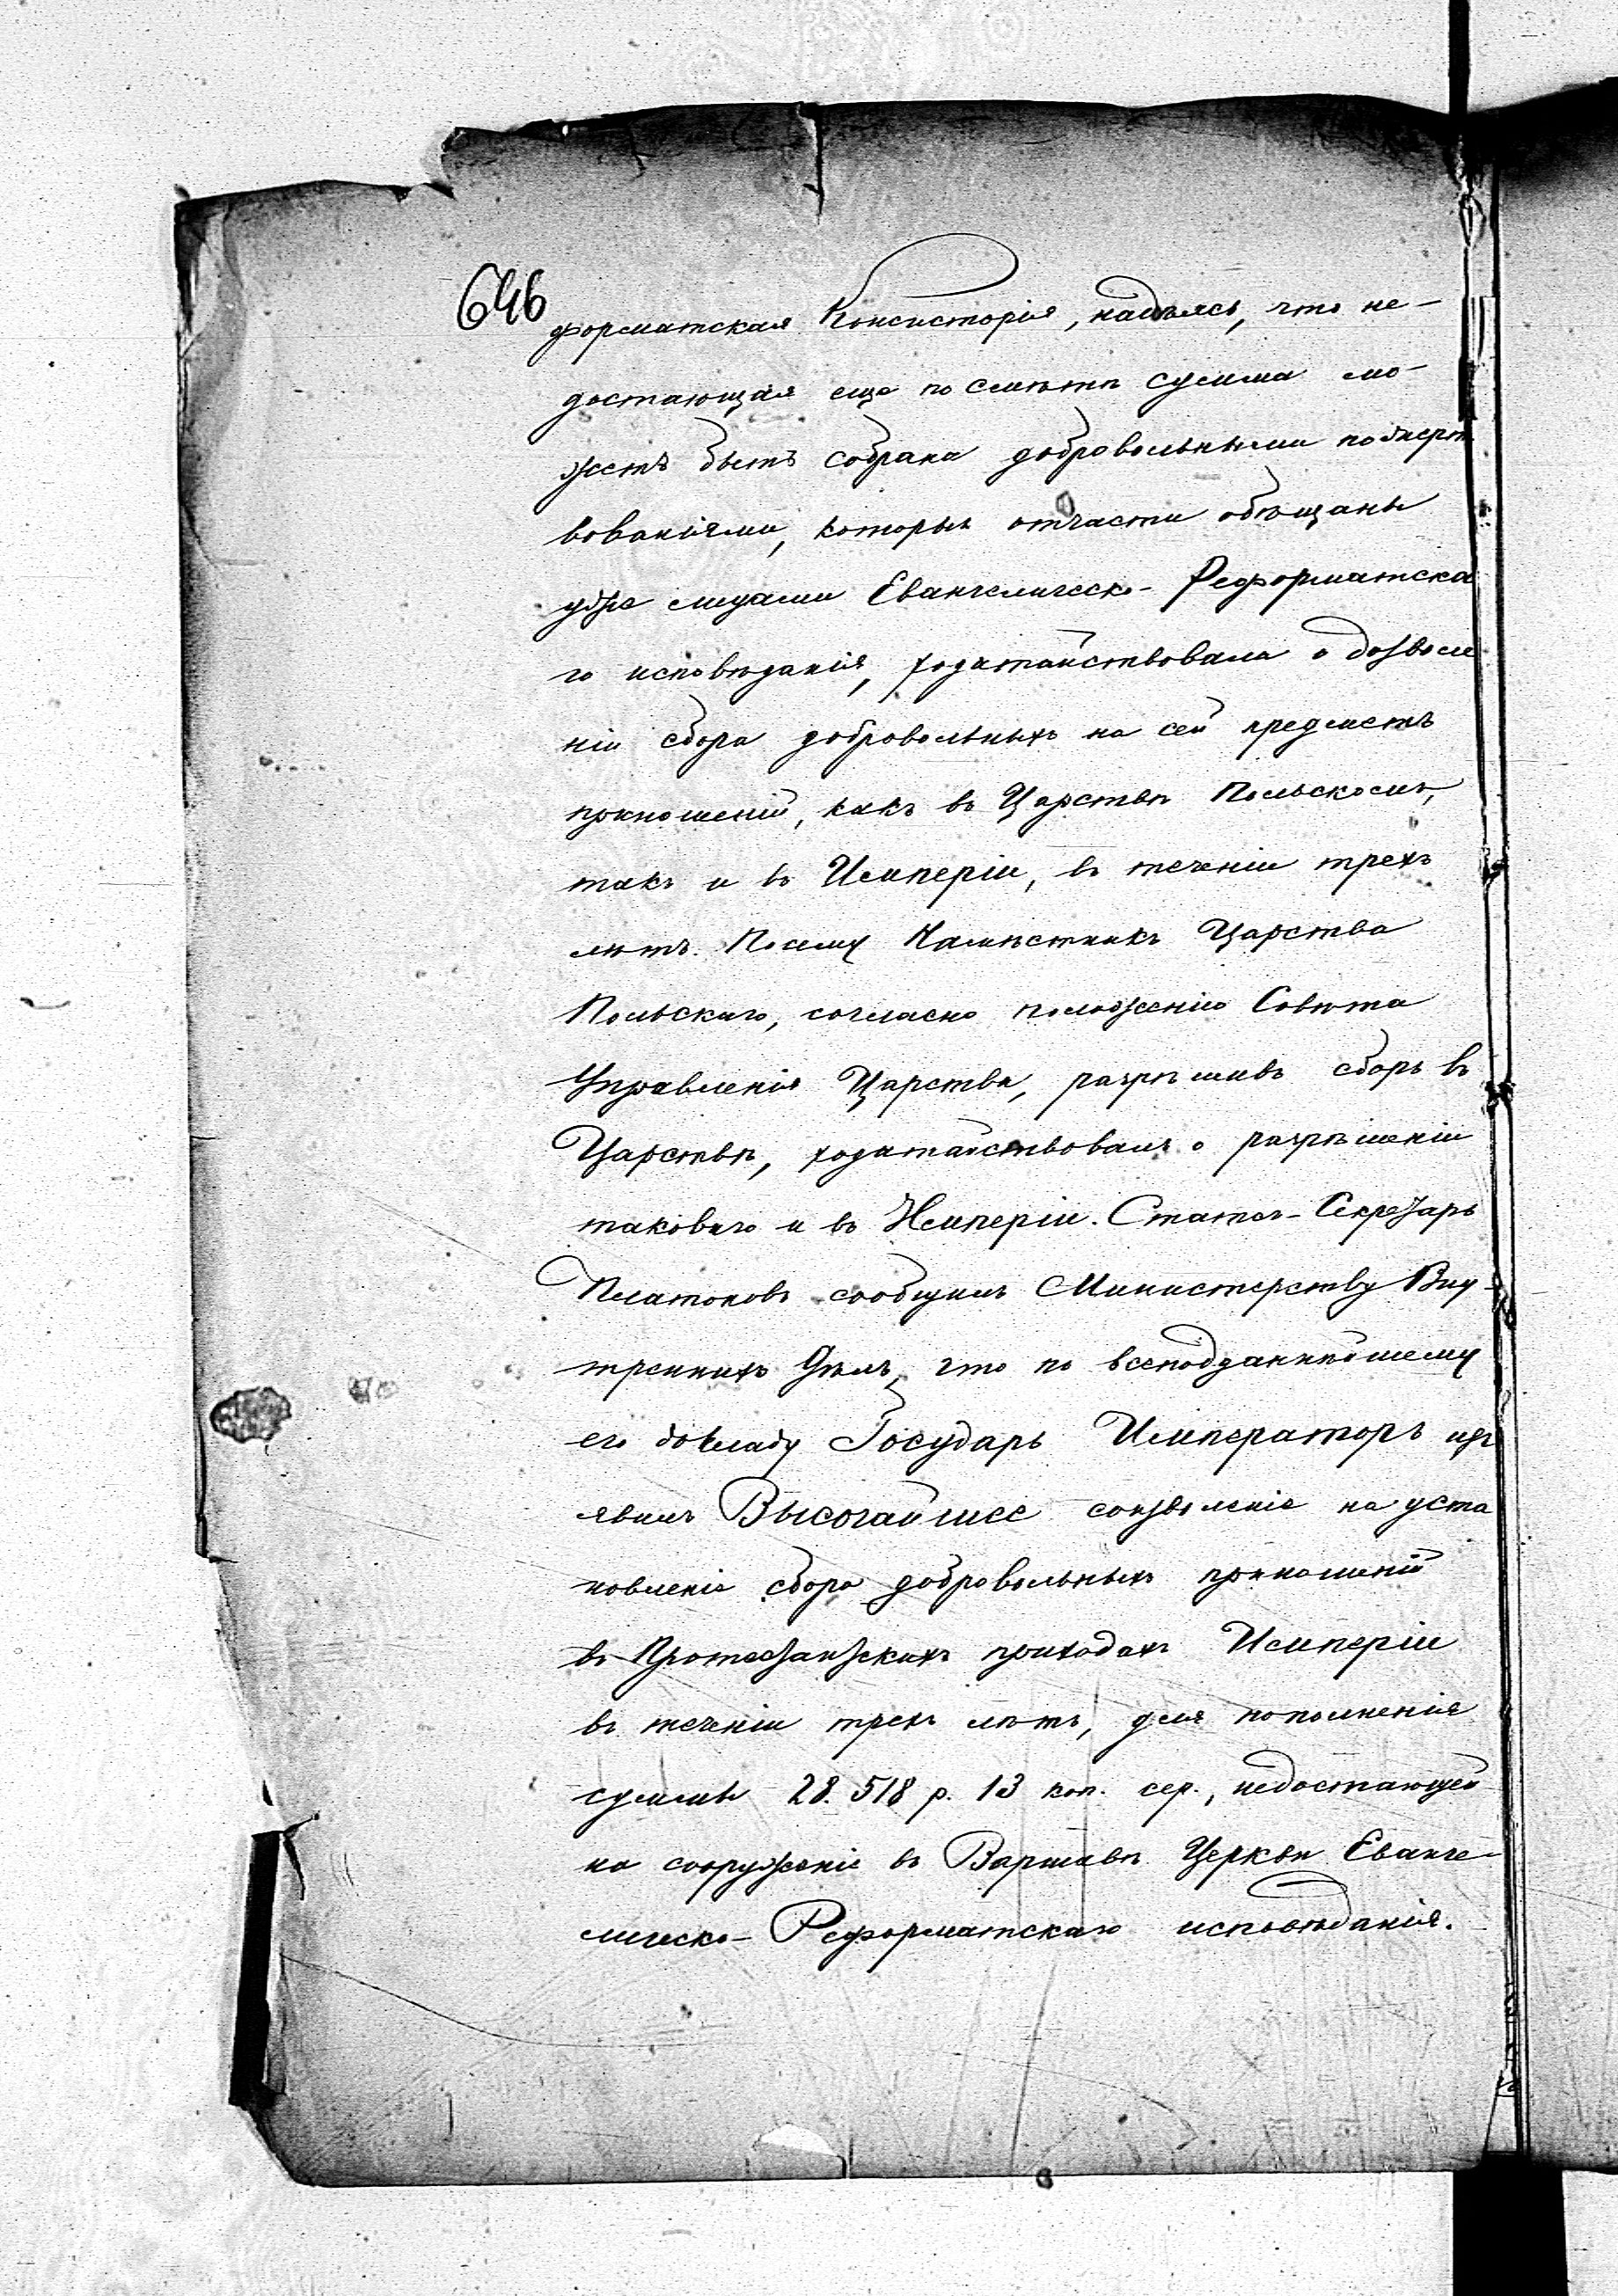 646
форматская Консисторія, надѣясь, что не-
достающая еще по смѣтѣ сумма мо-
жетъ быть собрана добровольными пожерт
вованіями, которыя отчасти обѣщаны
уже лицами Евангелическо-Реформатска
го исповѣданія, ходатайствовала о дозволе
ніи сбора добровольныхъ на сей предметъ
приношеній, какъ въ Царствѣ Польскомъ,
такъ и въ Имперіи, въ теченіи трехъ
лѣтъ. Посему Намѣстникъ Царства
Польскаго, согласно положенію Совѣта
Управленія Царства, разрѣшивъ сборъ въ
Царствѣ, ходатайствовалъ о разрѣшеніи
таковаго и въ Имперіи. Статсъ-Секретарь
Платоновъ сообщилъ Министерству Вну-
треннихъ Дѣлъ, что по всеподданнѣйшему
его докладу Государь Императоръ изъ
явилъ Высочайшее соизволеніе на уста
новленіе сбора добровольныхъ приношеній
въ Протестантскихъ приходахъ Имперіи
въ теченіи трехъ лѣтъ, для пополненія
суммы 28.518 р. 13 коп. сер., недостающей
на сооруженіе въ Варшавѣ Церкви Еванге-
лическо-Реформатскаго исповѣданія.